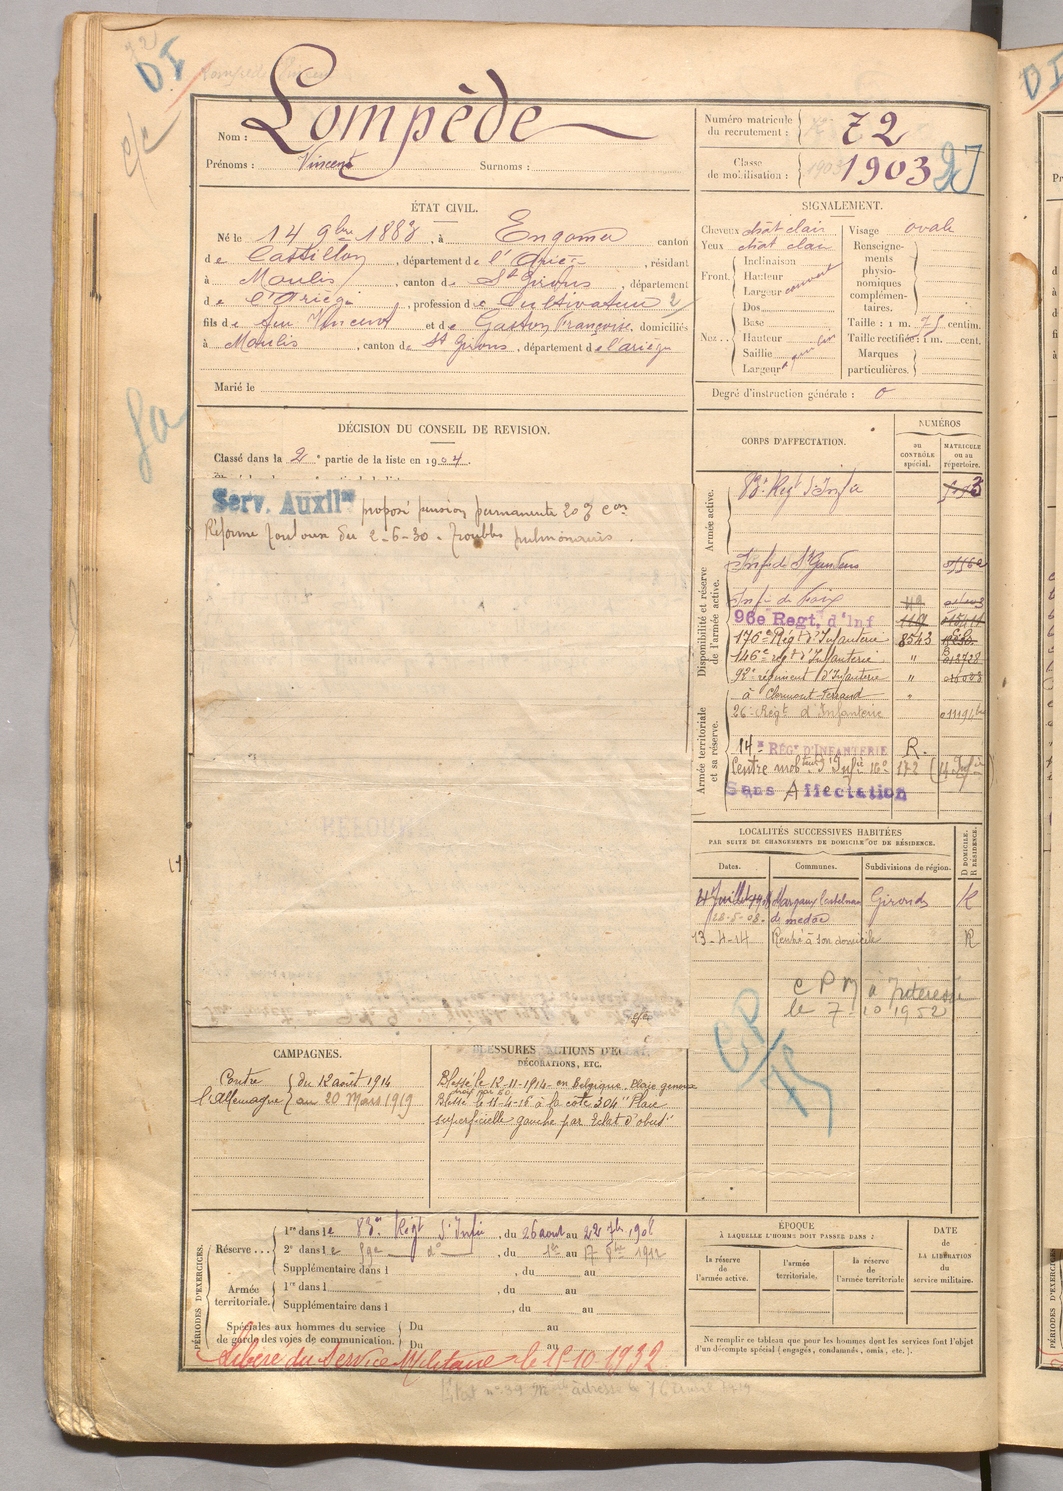 72
DI
c/c
Nom : Lompède
Prénoms : Vincent Surnoms :
Numéro matricule du recrutement : 72
Classe de mobilisation : 1903
ÉTAT CIVIL.
Né le 14 9bre 1883, à Engomer canton
de Castillon, département de l'Ariège, résidant
à Moulis, canton de St Girons, département
de l'Ariège, profession de Cultivateur
fils de feu Vincent et de Gaston Françoise, domiciliés
à Moulis, canton de St Girons, département de l'ariège
Marié le
SIGNALEMENT.
Cheveux chât clair
Yeux chât clair
Front.
Inclinaison
Hauteur
Largeur couvert
Nez..
Dos
Base
Hauteur
Saillie
Largeur
Visage ovale
Renseignements physionomiques complémentaires.
Taille : 1 m. 75 centim.
Taille rectifiée : 1 m. cent.
Marques particulières.
Degré d'instruction générale : 0
DÉCISION DU CONSEIL DE REVISION.
Classé dans la 2e partie de la liste en 1904.
Serv. Auxil re proposé pension permanente 20 %
Réforme Toulouse du 2-6-30 - troubles pulmonaires.
CORPS D'AFFECTATION.
NUMÉROS
au CONTRÔLE spécial.
MATRICULE ou au répertoire.
Armée active.
83e Regt d'Infie
Disponibilité et réserve de l'armée active.
Infie de St Gaudens
Infie de Foix
96e Regt. d'Inf
176e Régt d'Infanterie 8543
146e régt d'Infanterie "
92e régiment d'Infanterie "
à Clermont-Ferrand "
Armée territoriale et sa réserve.
26e Régt d'Infanterie
14e RÉGt D'INFANTERIE R.
Centre mobteur d'Infie 16e 172
Sans Affectation
LOCALITÉS SUCCESSIVES HABITÉES
PAR SUITE DE CHANGEMENTS DE DOMICILE OU DE RÉSIDENCE.
Dates. Communes. Subdivisions de région. D DOMICILE. R RÉSIDENCE.
Margaux Castelnau Gironde R
28-5-08. de medoc
13-4-14 Rentré à son domicile R
C P M à Intéressé
le 7-10 1952
CAMPAGNES.
Contre l'Allemagne
du 12 août 1914
au 20 Mars 1919
BLESSURES, ACTIONS D'ÉCLAT,
DÉCORATIONS, ETC.
Blessé le 12-11-1914 en Belgique. Plaie genoux
Blessé le 11-4-16 à la cote 304 "Plaie
superficielle gauche par éclat d'obus"
PÉRIODES D'EXERCICES.
Réserve...
1re dans le 83e Régt d'Infie, du 26 août au 22 7bre 1908
2e dans le do, du 1er au 17 1912
Supplémentaire dans l , du au
Armée territoriale.
1re dans l , du au
Supplémentaire dans l , du au
Spéciales aux hommes du service de garde des voies de communication.
Du au
Du au
Libéré du Service Militaire le 15-10-1932
ÉPOQUE
À LAQUELLE L'HOMME DOIT PASSER DANS :
la réserve de l'armée active.
l'armée territoriale.
la réserve de l'armée territoriale
DATE de LA LIBÉRATION du service militaire.
Ne remplir ce tableau que pour les hommes dont les services font l'objet
d'un décompte spécial (engagés, condamnés, omis, etc.).